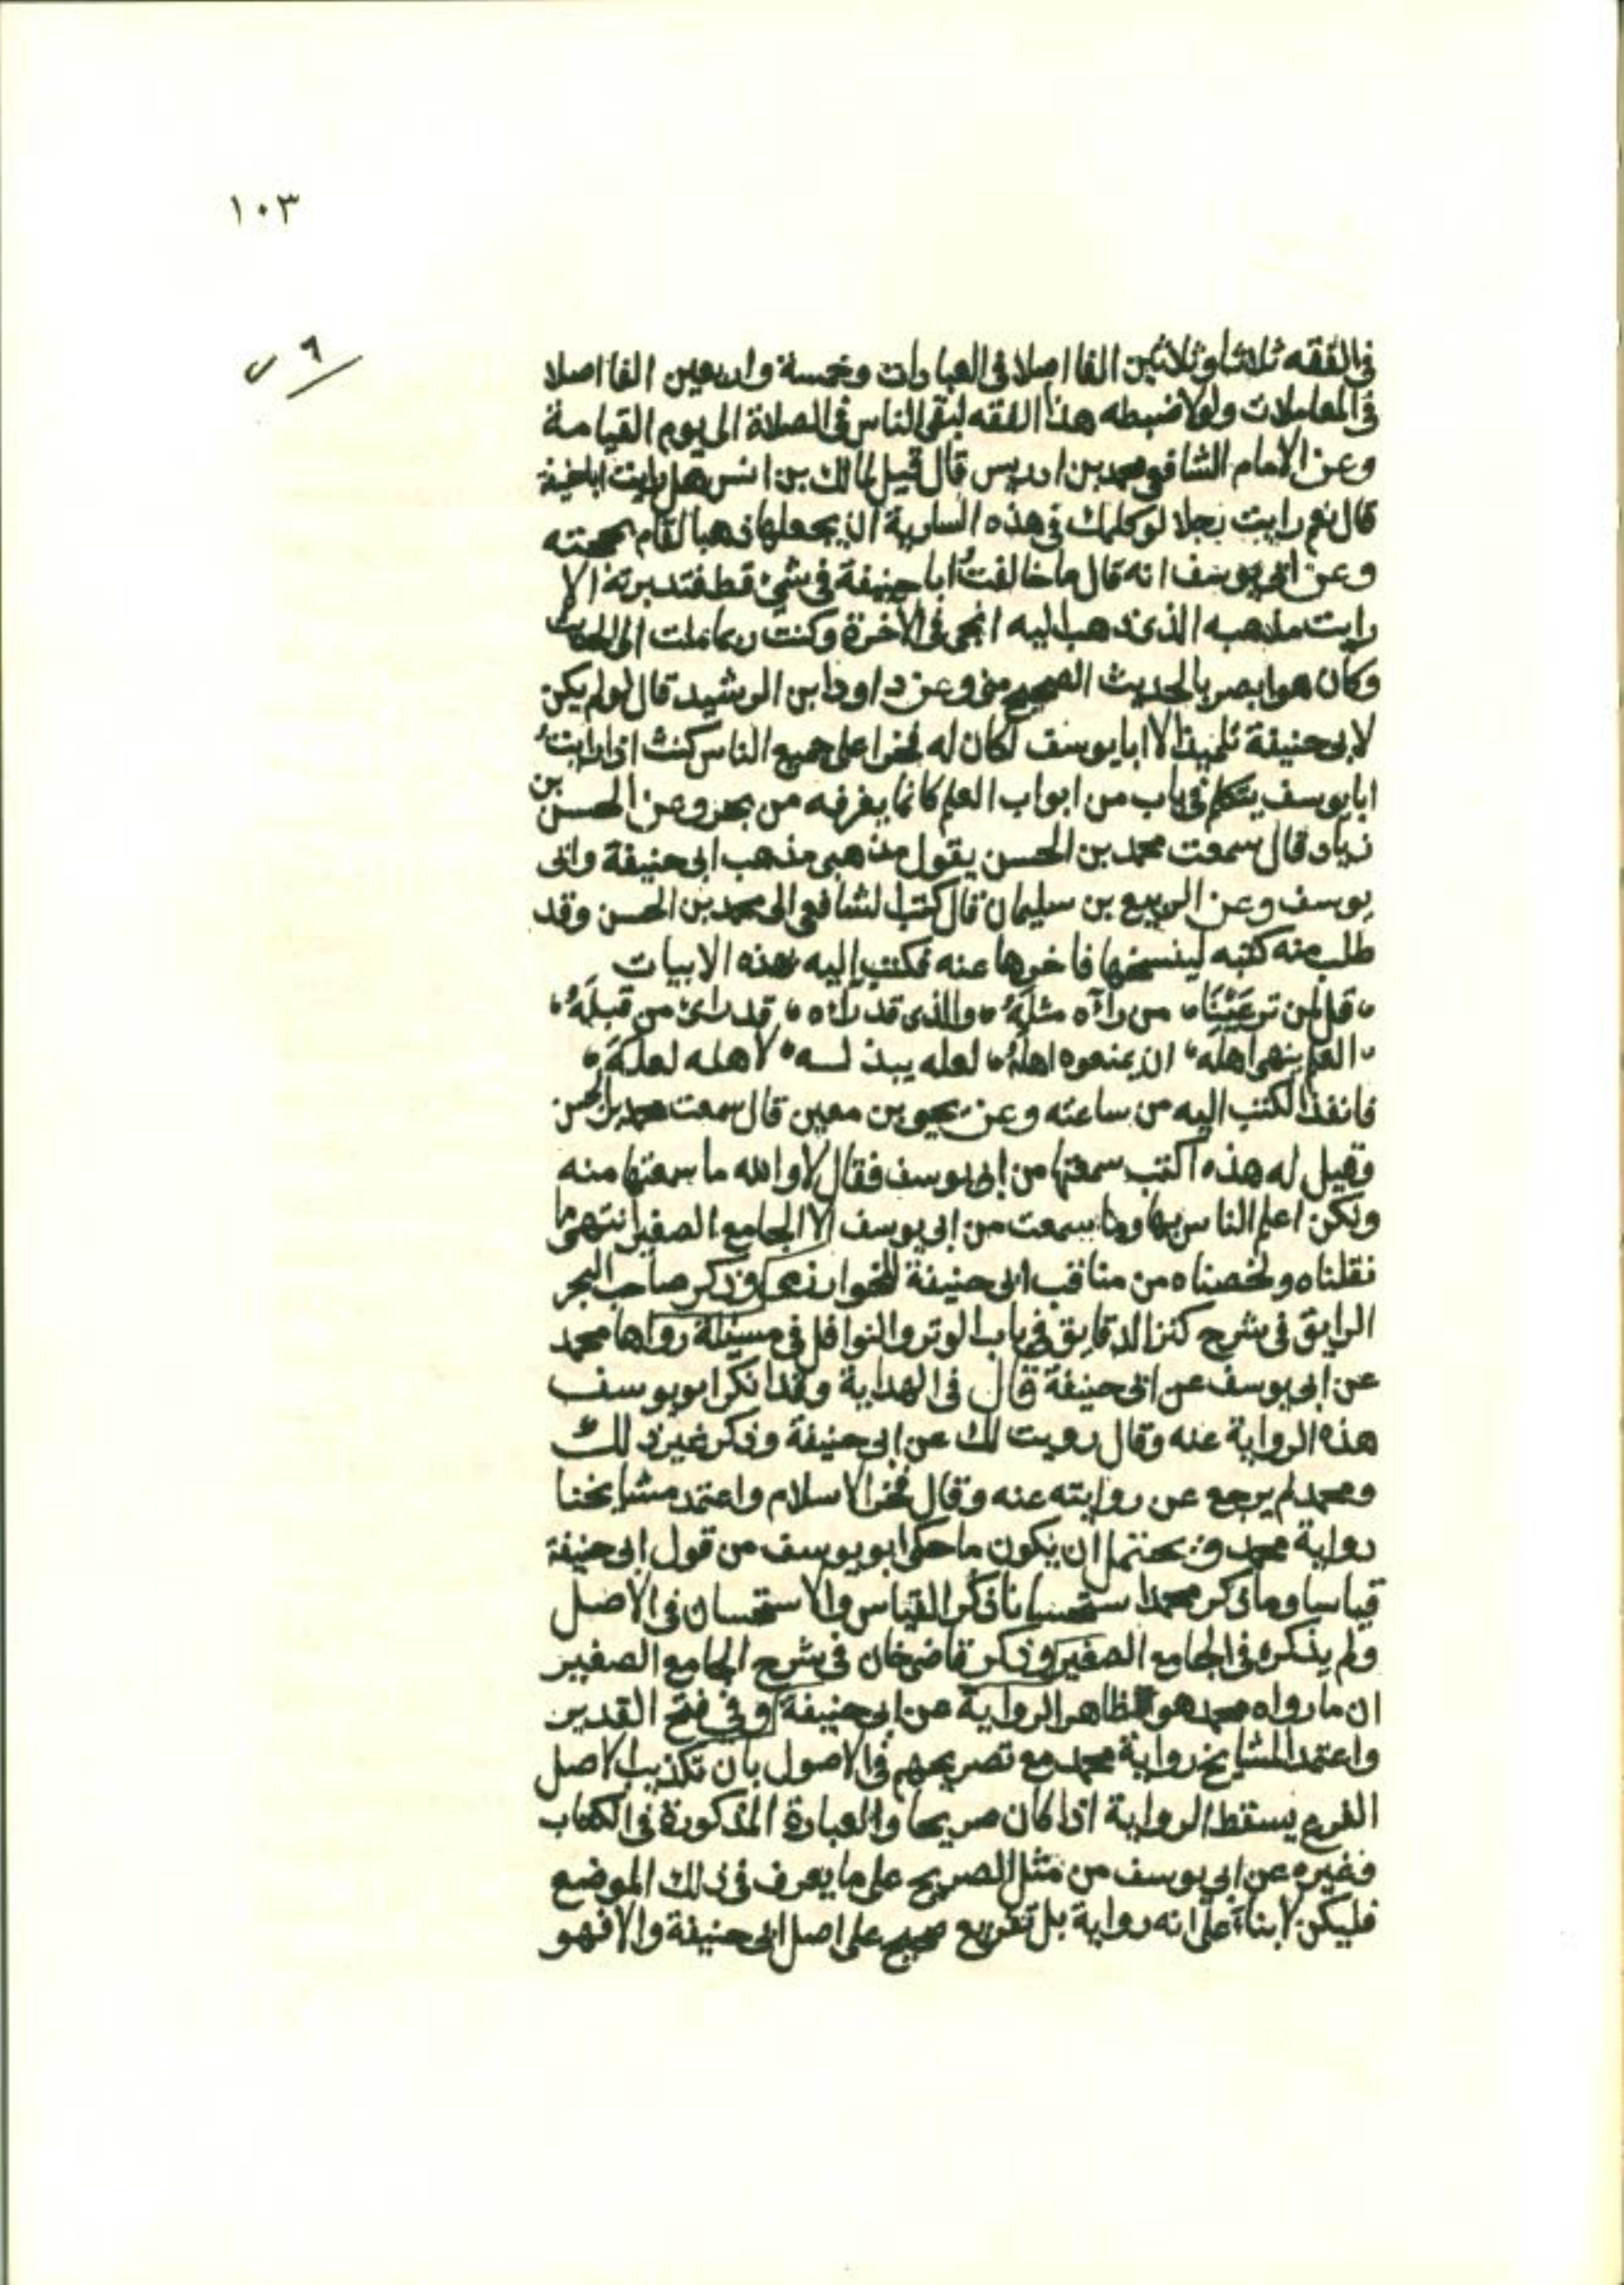 ١٠٣
٦ ب
في الفقه ثلاثا وثلاثين الفا اصلا في العبادات وخمسة واربعين الفا اصلا
في المعاملات ولولا ضبطه هذا الفقه لبقي الناس في الضلالة الى يوم القيامة
وعن الامام الشافعي محمد بن ادريس قال قيل لمالك بن انس هل رايت ابا حنيفة
قال نعم رايت رجلا لو كلمك في هذه السارية ان يجعلها ذهبا لقام بحجته
وعن ابي يوسف انه قال ما خالفتُ ابا حنيفة في شئ قط فتدبرته الا
رايت مذهبه الذي ذهب اليه انجى في الاخرة وكنت ربما ملت الى الحديث
وكان هو ابصر بالحديث الصحيح مني وعن داود ابن الرشيد قال لو لم يكن
لابي حنيفة تلميذ الا ابا يوسف لكان له فخرا على جميع الناس كنت اذا رايتُ
ابا يوسف يتكلم في باب من ابواب العلم كانما يغرفه من بحر وعن الحسن بن
زياد قال سمعت محمد بن الحسن يقول مذهبي مذهب ابي حنيفة وابي
يوسف وعن الربيع بن سليمان قال كتب الشافعي الى محمد بن الحسن وقد
طلب منه كتبه لينسخها فاخرها عنه فكتب اليه بهذه الابيات
قل لمن تر عَيْنَا من رآه مثلَهُ والذي قد رآه قد راى من قبلَهُ
العلم ينهى اهلَه ان يمنعوه اهلَهُ لعله يبذ لـه لاهله لعلَهَ
فانفذ الكتب اليه من ساعته وعن يحيى بن معين قال سمعت محمد بن الحسن
وقيل له هذه الكتب سمعتها من ابي يوسف فقال لا والله ما سمعتها منه
ولكن اعلم الناس بها وما سمعت من ابي يوسف الا الجامع الصغير انتهى ما
نقلناه ولخصناه من مناقب ابي حنيفة للخوارزمي وذكر صاحب البحر
الرايق في شرح كنز الدقايق في باب الوتر والنوافل في مسئلة رواها محمد
عن ابي يوسف عن ابي حنيفة قال في الهداية وقد انكر ابو يوسف
هذه الرواية عنه وقال رويت لك عن ابي حنيفة وذكر غير ذلك
ومحمد لم يرجع عن روايته عنه وقال فخر الاسلام واعتمد مشايخنا
رواية محمد ويحتمل ان يكون ما حكى ابو يوسف من قول ابي حنيفة
قياسا وما ذكر محمد استحسانا ذكر القياس والاستحسان في الاصل
ولم يذكره في الجامع الصغير وذكر قاضي خان في شرح الجامع الصغير
ان ما رواه محمد هو ظاهر الرواية عن ابي حنيفة وفي فتح القدير
واعتمد المشايخ رواية محمد مع تصريحهم في الاصول بان تكذيب الاصل
الفرع يسقط الرواية اذا كان صريحا والعبارة المذكورة في الكتاب
وغيره عن ابي يوسف من مثل الصريح على ما يعرف في ذلك الموضع
فليكن لا بناءً على انه رواية بل تفريع صحيح على اصل ابي حنيفة والا فهو